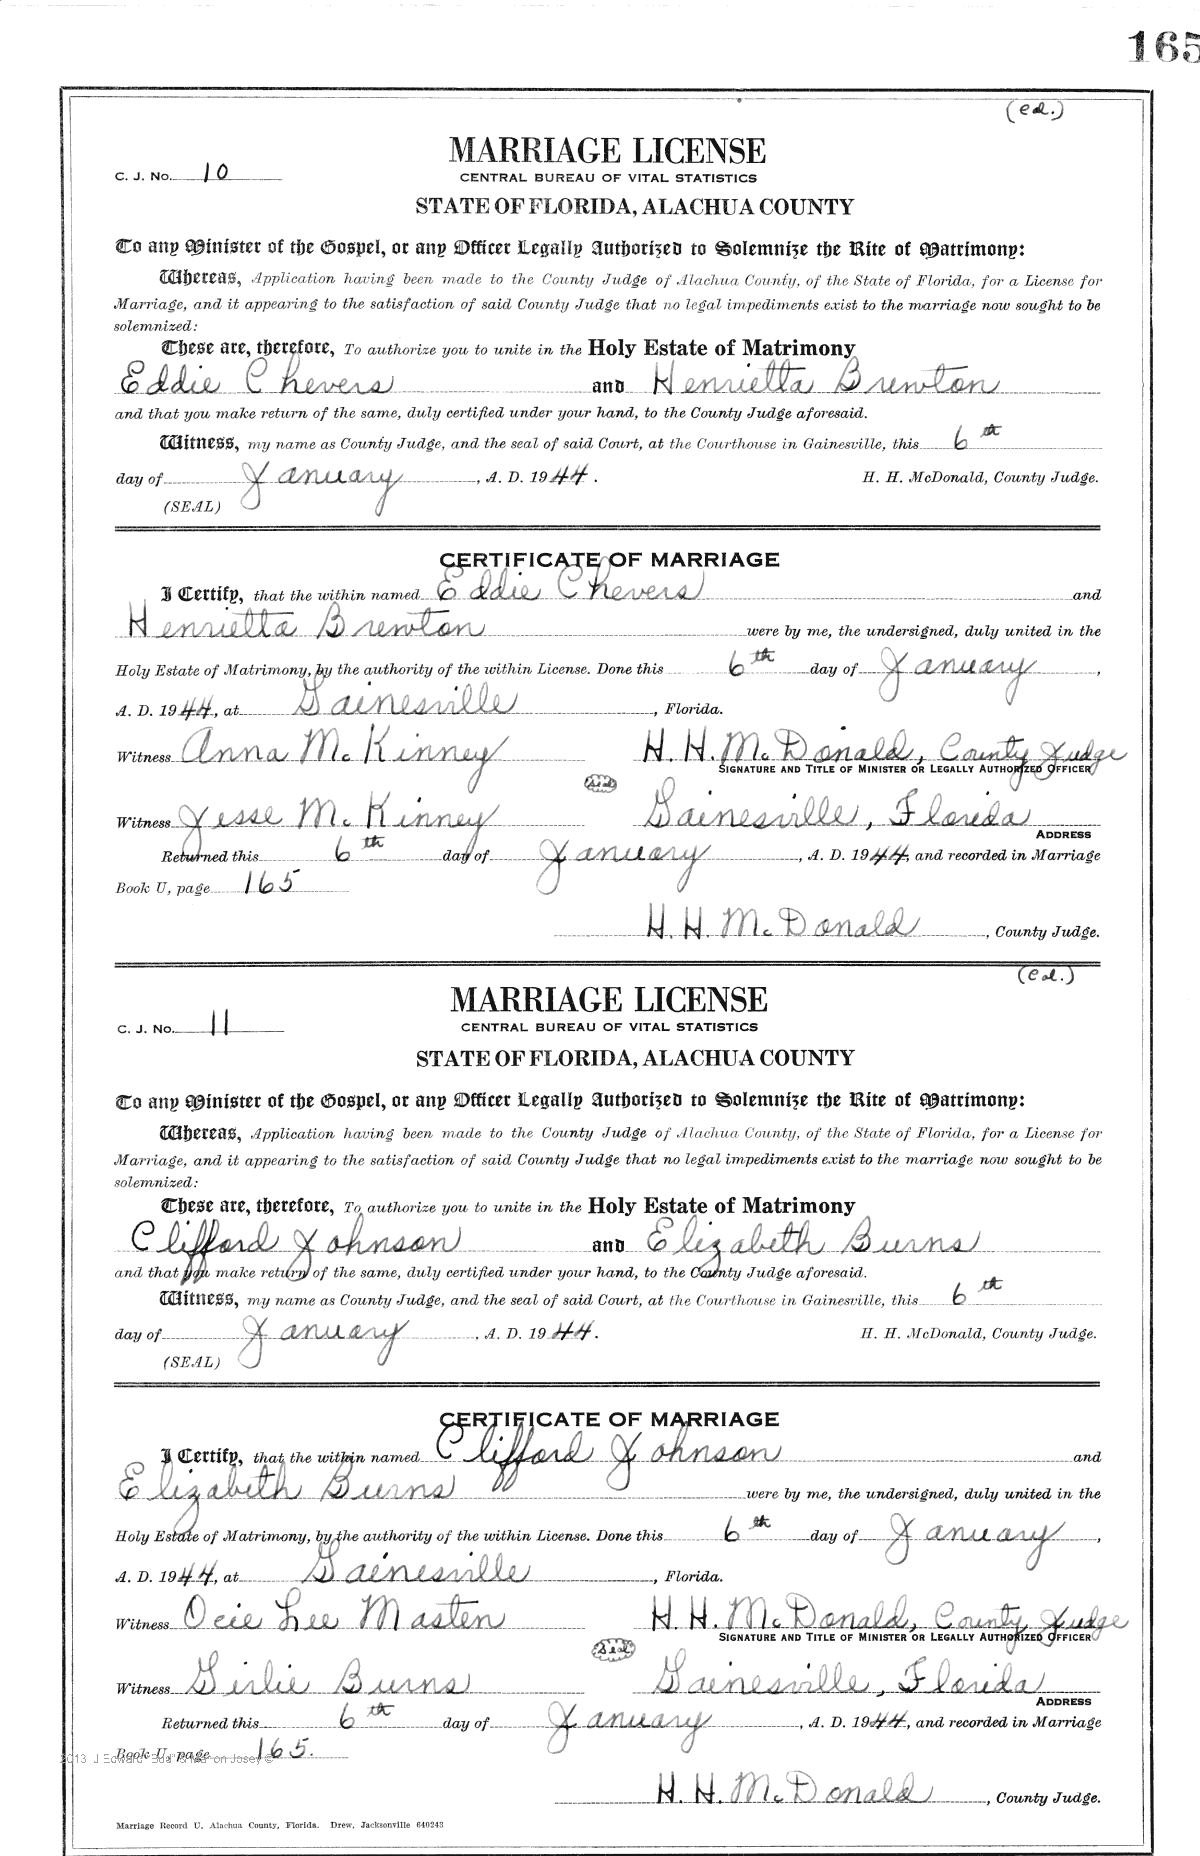 165
(cd.)
MARRIAGE LICENSE
C. J. No. 10
CENTRAL BUREAU OF VITAL STATISTICS
STATE OF FLORIDA, ALACHUA COUNTY
To any Minister of the Gospel, or any Officer Legally Authorized to Solemnize the Rite of Matrimony:
Whereas, Application having been made to the County Judge of Alachua County, of the State of Florida, for a License for
Marriage, and it appearing to the satisfaction of said County Judge that no legal impediments exist to the marriage now sought to be
solemnized:
These are, therefore, To authorize you to unite in the Holy Estate of Matrimony
Eddie Chevers and Henrietta Brewton
and that you make return of the same, duly certified under your hand, to the County Judge aforesaid.
Witness, my name as County Judge, and the seal of said Court, at the Courthouse in Gainesville, this 6th
day of January, A. D. 1944. H. H. McDonald, County Judge.
(SEAL)
CERTIFICATE OF MARRIAGE
I Certify, that the within named Eddie Chevers and
Henrietta Brewton were by me, the undersigned, duly united in the
Holy Estate of Matrimony, by the authority of the within License. Done this 6th day of January,
A. D. 1944, at Gainesville, Florida.
Witness Anna McKinney H. H. McDonald, County Judge
SIGNATURE AND TITLE OF MINISTER OR LEGALLY AUTHORIZED OFFICER
Seal
Witness Jesse McKinney Gainesville, Florida
ADDRESS
Returned this 6th day of January, A. D. 1944, and recorded in Marriage
Book U, page 165
H. H. McDonald, County Judge.
(cd.)
MARRIAGE LICENSE
C. J. No. 11
CENTRAL BUREAU OF VITAL STATISTICS
STATE OF FLORIDA, ALACHUA COUNTY
To any Minister of the Gospel, or any Officer Legally Authorized to Solemnize the Rite of Matrimony:
Whereas, Application having been made to the County Judge of Alachua County, of the State of Florida, for a License for
Marriage, and it appearing to the satisfaction of said County Judge that no legal impediments exist to the marriage now sought to be
solemnized:
These are, therefore, To authorize you to unite in the Holy Estate of Matrimony
Clifford Johnson and Elizabeth Burns
and that you make return of the same, duly certified under your hand, to the County Judge aforesaid.
Witness, my name as County Judge, and the seal of said Court, at the Courthouse in Gainesville, this 6th
day of January, A. D. 1944. H. H. McDonald, County Judge.
(SEAL)
CERTIFICATE OF MARRIAGE
I Certify, that the within named Clifford Johnson and
Elizabeth Burns were by me, the undersigned, duly united in the
Holy Estate of Matrimony, by the authority of the within License. Done this 6th day of January,
A. D. 1944, at Gainesville, Florida.
Witness Ocie Lee Masten H. H. McDonald, County Judge
SIGNATURE AND TITLE OF MINISTER OR LEGALLY AUTHORIZED OFFICER
Seal
Witness Girlie Burns Gainesville, Florida
ADDRESS
Returned this 6th day of January, A. D. 1944, and recorded in Marriage
Book U, page 165.
H. H. McDonald, County Judge.
Marriage Record U, Alachua County, Florida. Drew, Jacksonville 640243